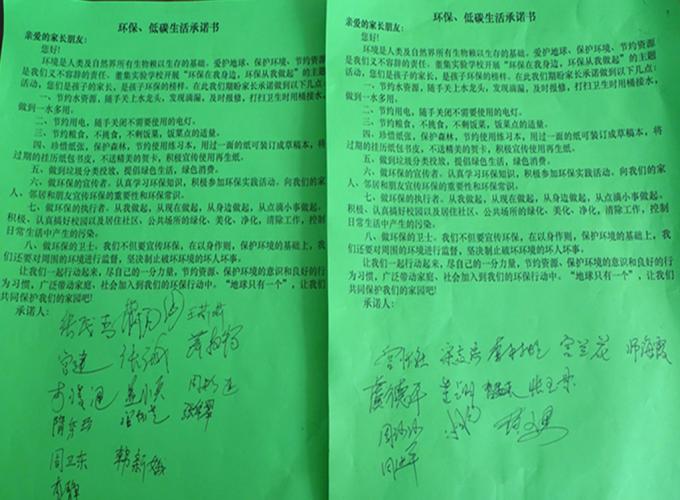 环保、低碳生活承诺书
亲爱的家长朋友：
您好！
环境是人类及自然界所有生物赖以生存的基础。爱护地球、保护环境、节约资源
是我们义不容辞的责任。董集实验学校开展“环保在我身边，环保从我做起”的主题
活动，您们是孩子的家长，是孩子环保的榜样。在此我们期盼家长承诺做到以下几点：
一、节约水资源，随手关上水龙头，发现滴漏，及时报修，打扫卫生时用桶接水，
做到一水多用。
二、节约用电，随手关闭不需要使用的电灯。
三、节约粮食，不挑食，不剩饭菜，饭菜点的适量。
四、珍惜纸张，保护森林，节约使用练习本，用过一面的纸可装订成草稿本，将
过期的挂历纸包书皮，不送精美的贺卡，积极宣传使用再生纸。
五、做到垃圾分类投放，提倡绿色生活，绿色消费。
六、做环保的宣传者。认真学习环保知识，积极参加环保实践活动。向我们的家
人、邻居和朋友宣传环保的重要性和环保常识。
七、做环保的执行者。从我做起，从现在做起，从身边做起，从点滴小事做起。
积极、认真搞好校园以及居住社区、公共场所的绿化、美化、净化，清除工作，控制
日常生活中产生的污染。
八、做环保的卫士。我们不但要宣传环保，在以身作则，保护环境的基础上，我
们还要对周围的环境进行监督，坚决制止破坏环境的坏人坏事。
让我们一起行动起来，尽自己的一分力量，节约资源、保护环境的意识和良好的行
为习惯，广泛带动家庭、社会加入到我们的环保行动中。“地球只有一个”，让我们
共同保护我们的家园吧！
承诺人：
周卫东 韩新娥
环保、低碳生活承诺书
亲爱的家长朋友：
您好！
环境是人类及自然界所有生物赖以生存的基础。爱护地球、保护环境、节约资源
是我们义不容辞的责任。董集实验学校开展“环保在我身边，环保从我做起”的主题
活动，您们是孩子的家长，是孩子环保的榜样。在此我们期盼家长承诺做到以下几点：
一、节约水资源，随手关上水龙头，发现滴漏，及时报修，打扫卫生时用桶接水，
做到一水多用。
二、节约用电，随手关闭不需要使用的电灯。
三、节约粮食，不挑食，不剩饭菜，饭菜点的适量。
四、珍惜纸张，保护森林，节约使用练习本，用过一面的纸可装订成草稿本，将
过期的挂历纸包书皮，不送精美的贺卡，积极宣传使用再生纸。
五、做到垃圾分类投放，提倡绿色生活，绿色消费。
六、做环保的宣传者。认真学习环保知识，积极参加环保实践活动。向我们的家
人、邻居和朋友宣传环保的重要性和环保常识。
七、做环保的执行者。从我做起，从现在做起，从身边做起，从点滴小事做起。
积极、认真搞好校园以及居住社区、公共场所的绿化、美化、净化，清除工作，控制
日常生活中产生的污染。
八、做环保的卫士。我们不但要宣传环保，在以身作则，保护环境的基础上，我
们还要对周围的环境进行监督，坚决制止破坏环境的坏人坏事。
让我们一起行动起来，尽自己的一分力量，节约资源、保护环境的意识和良好的行
为习惯，广泛带动家庭、社会加入到我们的环保行动中。“地球只有一个”，让我们
共同保护我们的家园吧！
承诺人：
宫兰花 师海霞